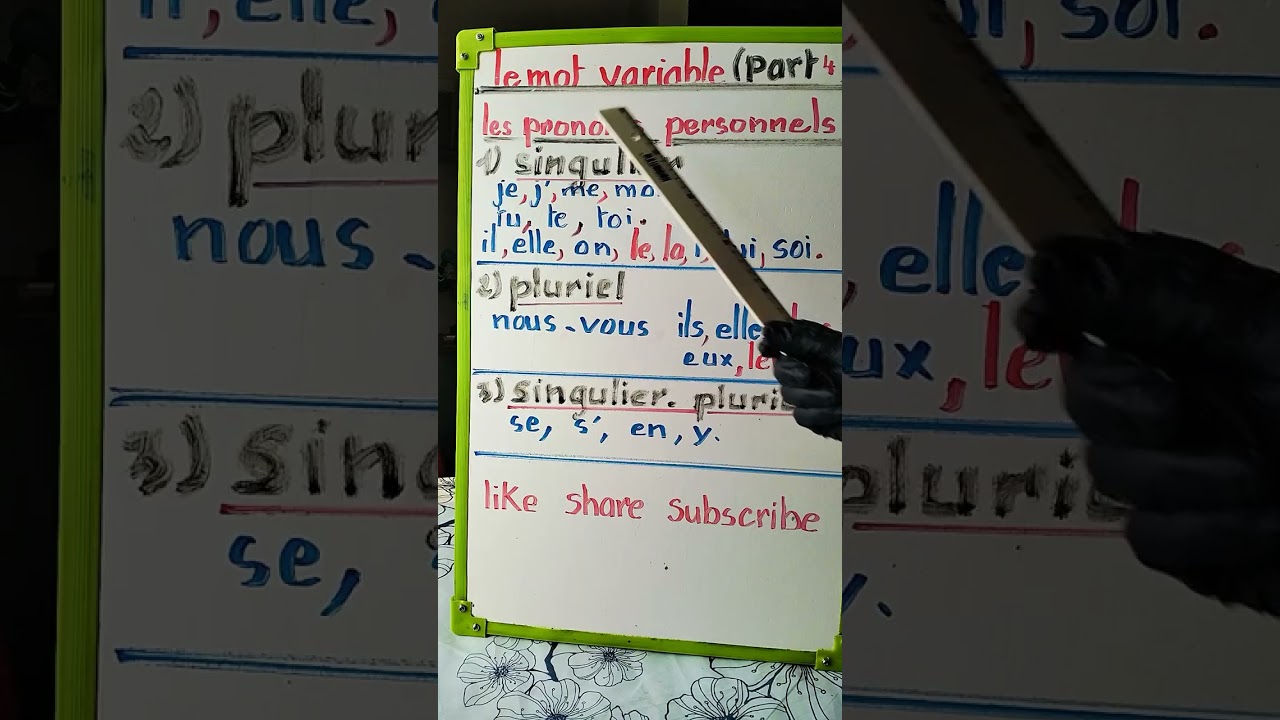 le mot variable (part 4
les pronoms personnels
1) singulier
je, j', me, mo
tu, te, toi.
il, elle, on, le, la, l', lui, soi.
2) pluriel
nous - vous ils, elle
eux, le
3) singulier. pluri
se, s', en, y.
like share subscribe